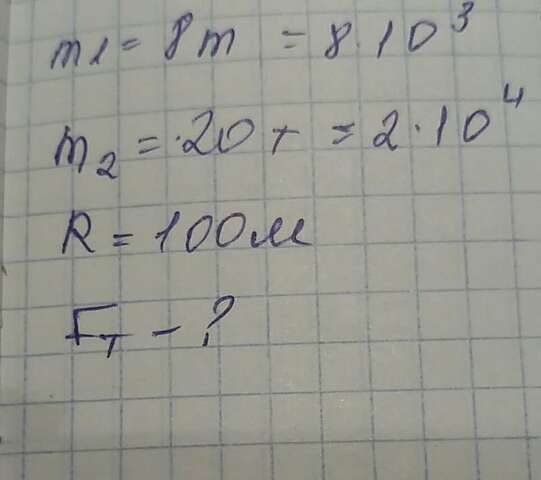 m1 = 8т = 8·10³
m₂ = ·20 т = 2·10⁴
R = 100м
Fт – ?